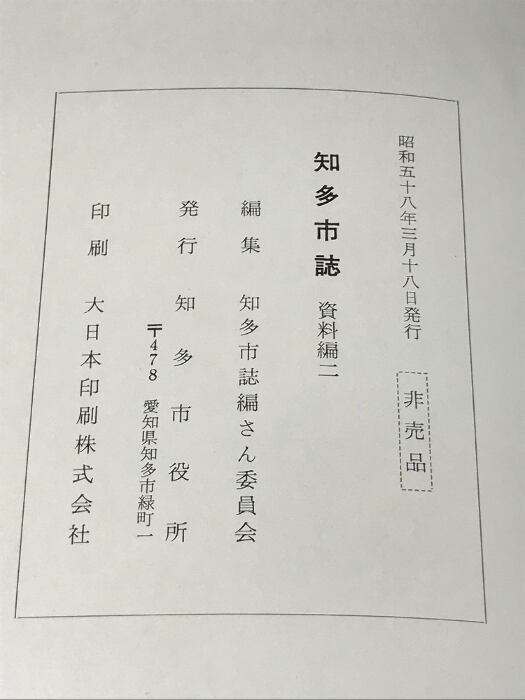 昭和五十八年三月十八日発行　非売品
知多市誌　資料編二
編集　知多市誌編さん委員会
発行　知多市役所
〒478　愛知県知多市緑町一
印刷　大日本印刷株式会社